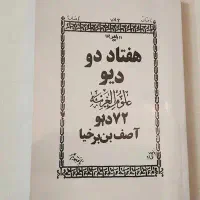 هفتاد دو
دیو
علوم الغریبه
۷۲ دیو
آصف بن برخیا